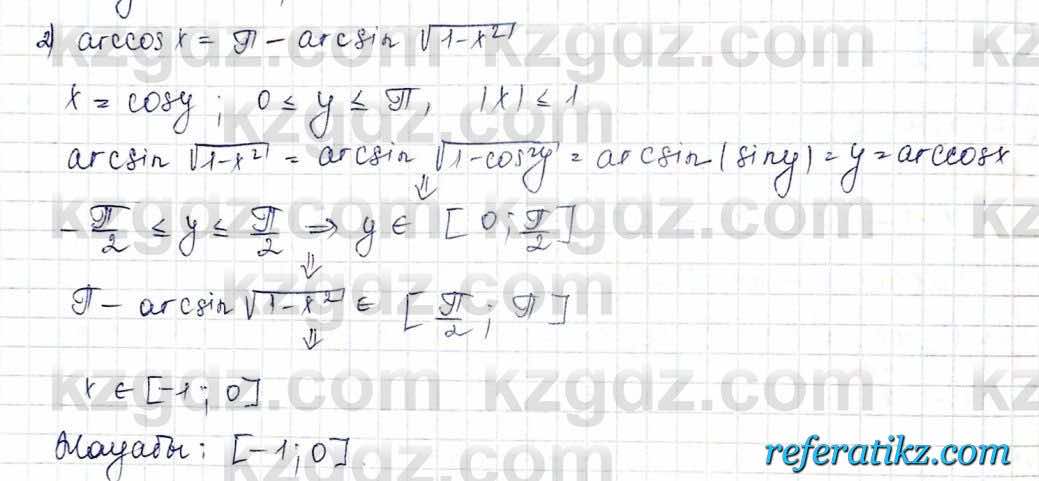 2) arccos x = π − arcsin √(1−x²)
x = cosy ; 0 ≤ y ≤ π, |x| ≤ 1
arcsin √(1−x²) = arcsin √(1−cos²y) = arcsin(siny) = y = arccosx
⇓
−π/2 ≤ y ≤ π/2 ⇒ y ∈ [0; π/2]
⇓
π − arcsin √(1−x²) ∈ [π/2; π]
⇓
x ∈ [−1; 0]
Жауабы: [−1; 0]
kzgdz.com
referatikz.com